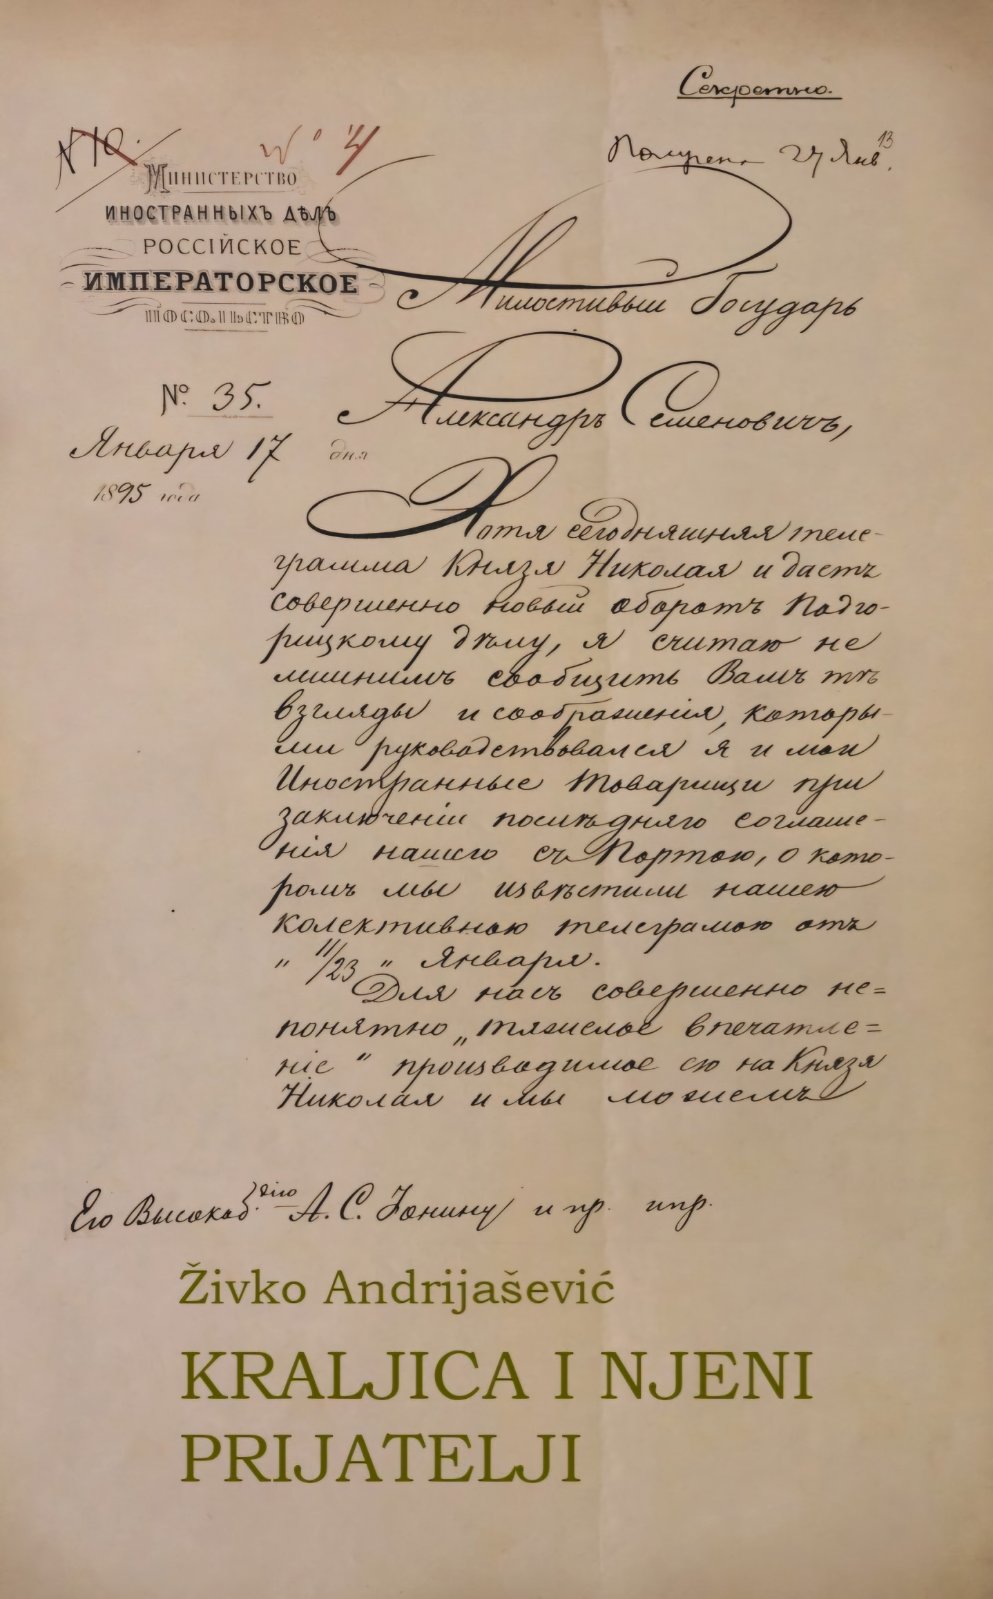 Секретно.
N 10.
№ 4
Получена 27 Янв.
13
Министерство
иностранныхъ дѣлъ
РОССІЙСКОЕ
ИМПЕРАТОРСКОЕ
ПОСОЛЬСТВО
Милостивый Государь
№. 35.
Александръ Семеновичъ,
Января 17 дня
1895 года
Хотя сегодняшняя теле-
грамма Князя Николая и даетъ
совершенно новый оборотъ Подго-
рицкому дѣлу, я считаю не
лишнимъ сообщить Вамъ тѣ
взгляды и соображенія, которы-
ми руководствовался я и мои
Иностранные товарищи при
заключеніи послѣдняго соглаше-
нія нашего съ Портою, о кото-
ромъ мы извѣстили нашею
колективною телеграмою отъ
„ 11/23 „ Января.
Для насъ совершенно не=
понятно „тяжелое впечатле=
ніе" производимое ею на Князя
Николая и мы можемъ
Его Высокод. А. С. Іонину и пр. ипр.
Živko Andrijašević
KRALJICA I NJENI
PRIJATELJI